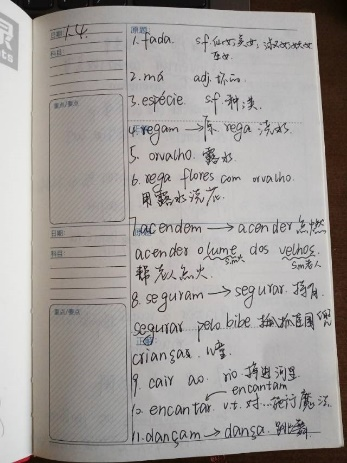 日期: 1.4.
原题:
科目:
1. fada. sf. 仙女, 美女;
2. má adj. 坏的
3. espécie. sf. 种类
重点/难点
4. regam → 原 rega 浇水.
5. orvalho. 露水
6. rega flores com orvalho.
用露水浇花
日期:
7. acendem → acender 点燃
科目:
acender o lume dos velhos.
sm火 sm老人
帮老人点火
8. seguram → segurar.
重点/难点
segurar pelo bibe
crianças. 儿童.
9. cair ao rio 掉进河里
encantam
10. encantar v.t. 对...施行魔法.
11. dançam → dança. 跳舞